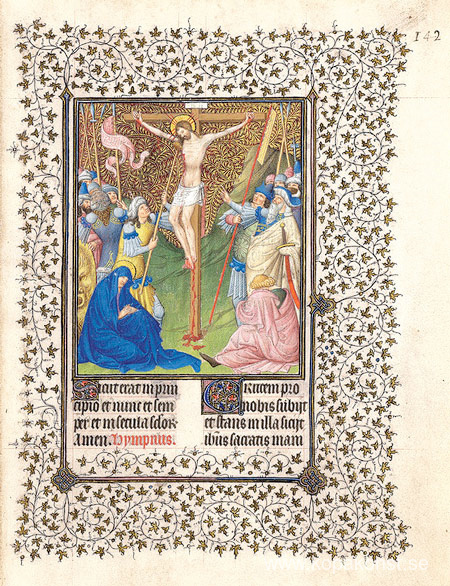 142
Sicut erat in prin
cipio et nunc et sem
per et in secula sclor.
Amen. Ympnus.
Crucem pro
nobis subiit
et stans in illa siciit
ihus sacratis mani